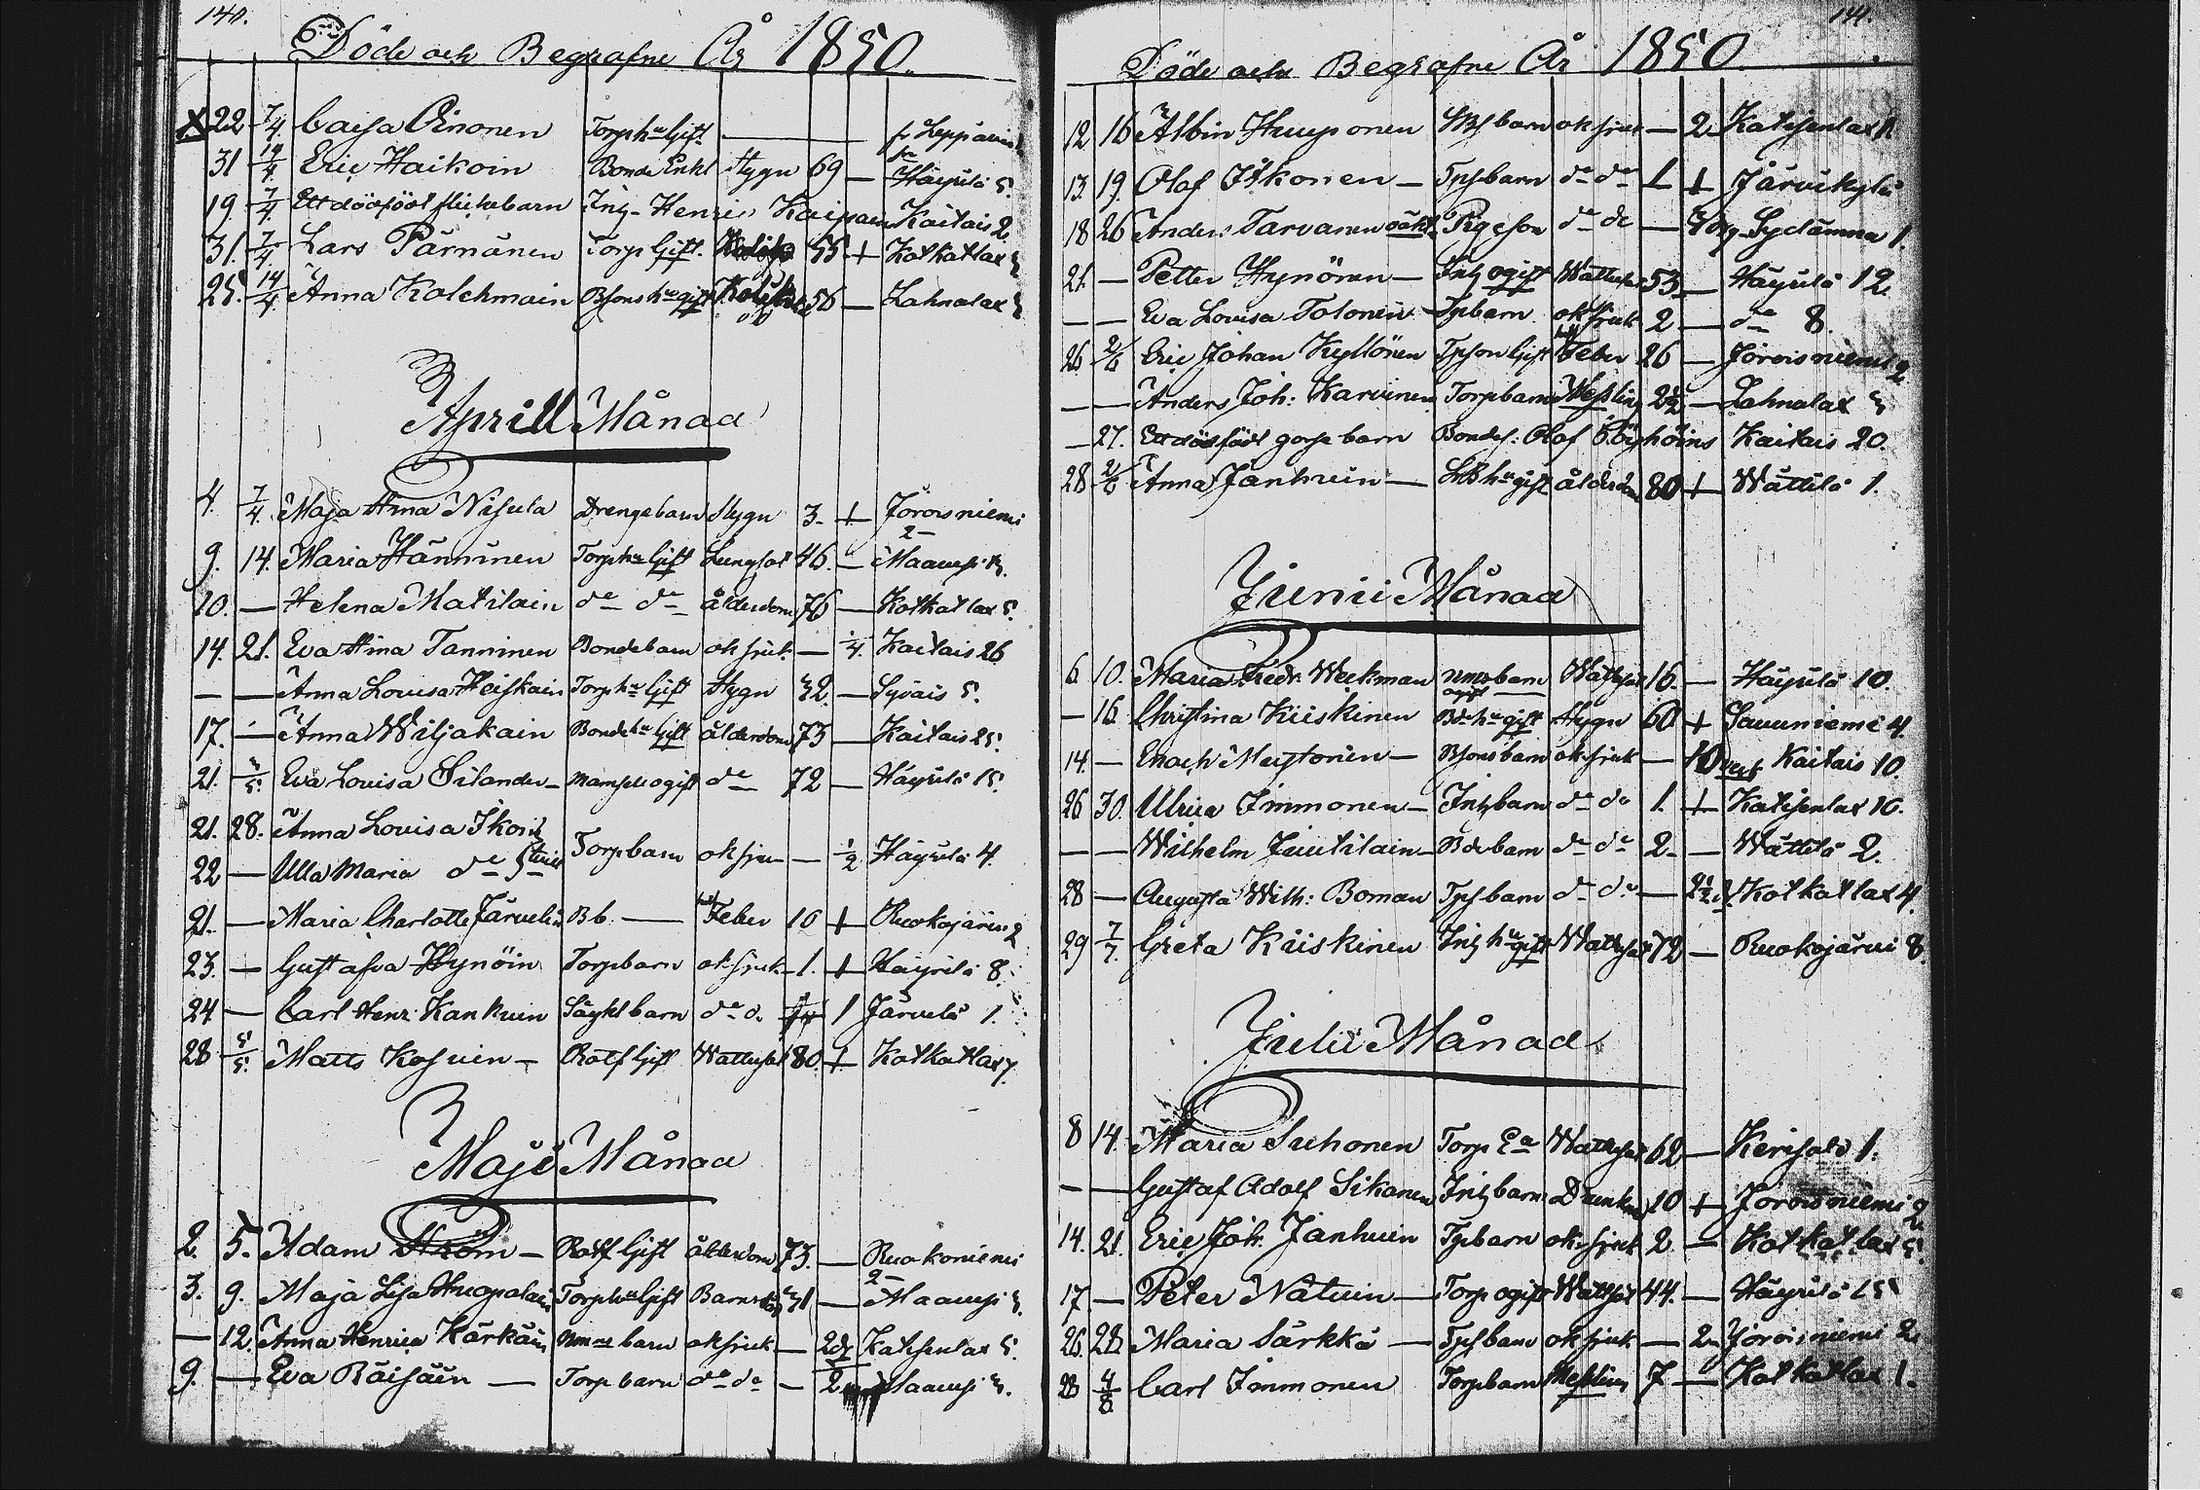 140.
Döde och Begrafne År 1850.
22 7/4 Caisa Oinonen Torph:u Gift — fr Leppävirta
31 14/4 Eric Haikoin Bonde Enkl Hygn 69 — Häyrilä 5.
19 7/4 Ett dödfödt flickebarn Inh- Henric Kaipain Kaitais 2
31. 7/4 Lars Pärnänen Torp Gift. 55 + Kotkatlax
25. 14/4 Anna Kolehmain Bsons h:u gift 56 — Lahnalax 3
Aprill Månad
4. 7/4 Maja Stina Nisula Drengebarn Hygn 3. + Jöroisniemi 2
9. 14. Maria Hänninen Torph:u Gift Lungsot 46. — Maavesi 3.
10. — Helena Matilain d:o d:o ålderdom 76 — Kotkatlax 5.
14. 21. Eva Stina Tanninen Bondebarn ok sjuk. — 1/4. Kaitais 26
— — Anna Lovisa Heiskain Torph:u Gift Hygn 32 — Syväis 5.
17. — Anna Wiljakain Bondeh:u Gift ålderdom 73 — Kaitais 25.
21. 3/5 Eva Lovisa Silander — Mamsell ogift d:o 72 — Häyrilä 15.
21. 28. Anna Lovisa Ikon
22 — Ulla Maria d:o Torpbarn ok sju — 1/2 Häyrilä 4.
21. — Maria Charlotte Järvelin Bb. — Feber 10 + Ruokojärvi 2
23. — Gustafva Hynöin Torpbarn ok sjuk 1. + Häyrilä 8.
24 — Carl Henr. Kankuin barn d:o d:o 1 Järvelä 1.
28 5/5. Matts Kosuin — Rotf Gift Wattusot 80. + Kotkatlax 7.
Maji Månad
2. 5. Adam Ström — Rotf Gift ålderdom 73. — Ruokoniemi 2
3. 9. Maja Lisa Huopalain Torph:u Gift Barns 31 — Maavesi 3.
— 12. Anna Henrica Kärkäin barn ok sjuk — Katisenlax 5.
9. — Eva Räisäin — Torp barn d:o d:o — 2 Maavesi 3.
141.
Döde och Begrafne År 1850
12 16 Albin Huuponen barn ok sjuk — 2 Katisenlax
13. 19. Olof Itkonen — Tpsbarn d:o d:o 1 + Järvikylä
18 26 Anders Tarvanen oäkt. Pigeson d:o d:o — Sydämma 1.
21. — Petter Hynönen — Inh ogift Wattusot 53 — Häyrilä 12.
— — Eva Lovisa Tolonen — Tpbarn ok sjuk 2 — d:o 8.
26 2/6 Eric Johan Kyllönen Tpson Gift Feber 26 — Jöroisniemi 2
— — Anders Joh: Karvinen Torpbarn Messling 2 1/2 — Lahnalax 3
— 27. Ett dödfödt gosse barn Bondes: Olof Kaitais 20.
28 2/6 Anna Janhuin — h:u gift ålderdom 80 + Wättilä 1.
Junii Månad
6 10. Maria Fredr. Weckman barn ogift Wattusot 16. — Häyrilä 10.
— 16. Christina Kiiskinen Bdeh:u gift Hygn 60 + Savuniemi 4.
14. — Enoch Myytönen — Bsons barn ok sjuk — 10 Kaitais 10.
26 30. Ulrica Immonen — Inhbarn d:o d:o 1. + Katisenlax 10.
— — Wilhelm Juutilain — Bdebarn d:o d:o 2. — Wättilä 2.
28 — Augusta Wilh: Boman Tpsbarn d:o d:o — 2 1/2 Kotkatlax 4.
29 7/7. Greta Kiiskinen Inh h:u gift Wattusot 72 — Ruokojärvi 8.
Julii Månad
8 14. Maria Suhonen Torp E:a Wattusot 62 — Kerisalo 1.
— — Gustaf Adolf Sikanen Inhbarn Drunk 10 + Jöroisniemi 2.
14. 21. Eric Joh. Janhuin Tpbarn ok sjuk 2. — Kotkatlax 5.
17. — Peter Natuin — Torp ogift Wattsot 44. — Häyrilä 15
26. 28 Maria Särkkä — Tpsbarn ok sjuk — 2 Jöroisniemi 2.
28 4/8 Carl Immonen Torpbarn Messling 7 — Kotkatlax 1.